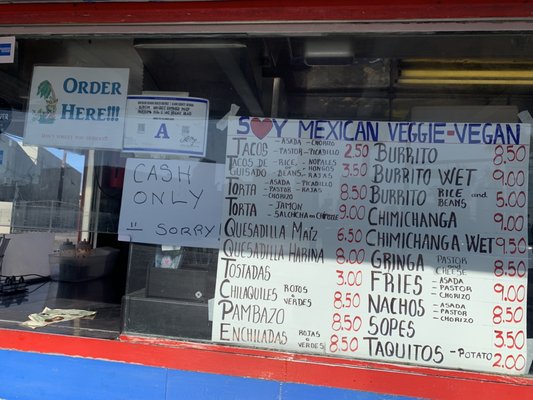 ORDER
HERE!!!
A
CASH
ONLY
= SORRY!
S♥Y MEXICAN VEGGIE-VEGAN
TACOS - ASADA - CHORIZO - PASTOR - PICADILLO 2.50
TACOS DE GUISADO - RICE - NOPALES - HONGOS - BEANS - RAJAS 3.50
TORTA - ASADA - PICADILLO - PASTOR - RAJAS CHORIZO 8.50
TORTA - JAMON - SALCHICHA CON CHIPOTLE 9.00
QUESADILLA MAIZ 6.50
QUESADILLA HARINA 8.00
TOSTADAS 3.00
CHILAQUILES ROJOS & VERDES 8.50
PAMBAZO 8.50
ENCHILADAS ROJAS & VERDES 8.50
BURRITO 8.50
BURRITO WET 9.00
BURRITO RICE and BEANS 5.00
CHIMICHANGA 9.00
CHIMICHANGA WET 9.50
GRINGA PASTOR and CHEESE 8.50
FRIES - ASADA - PASTOR - CHORIZO 9.00
NACHOS - ASADA - PASTOR - CHORIZO 8.50
SOPES 3.50
TAQUITOS - POTATO 2.00